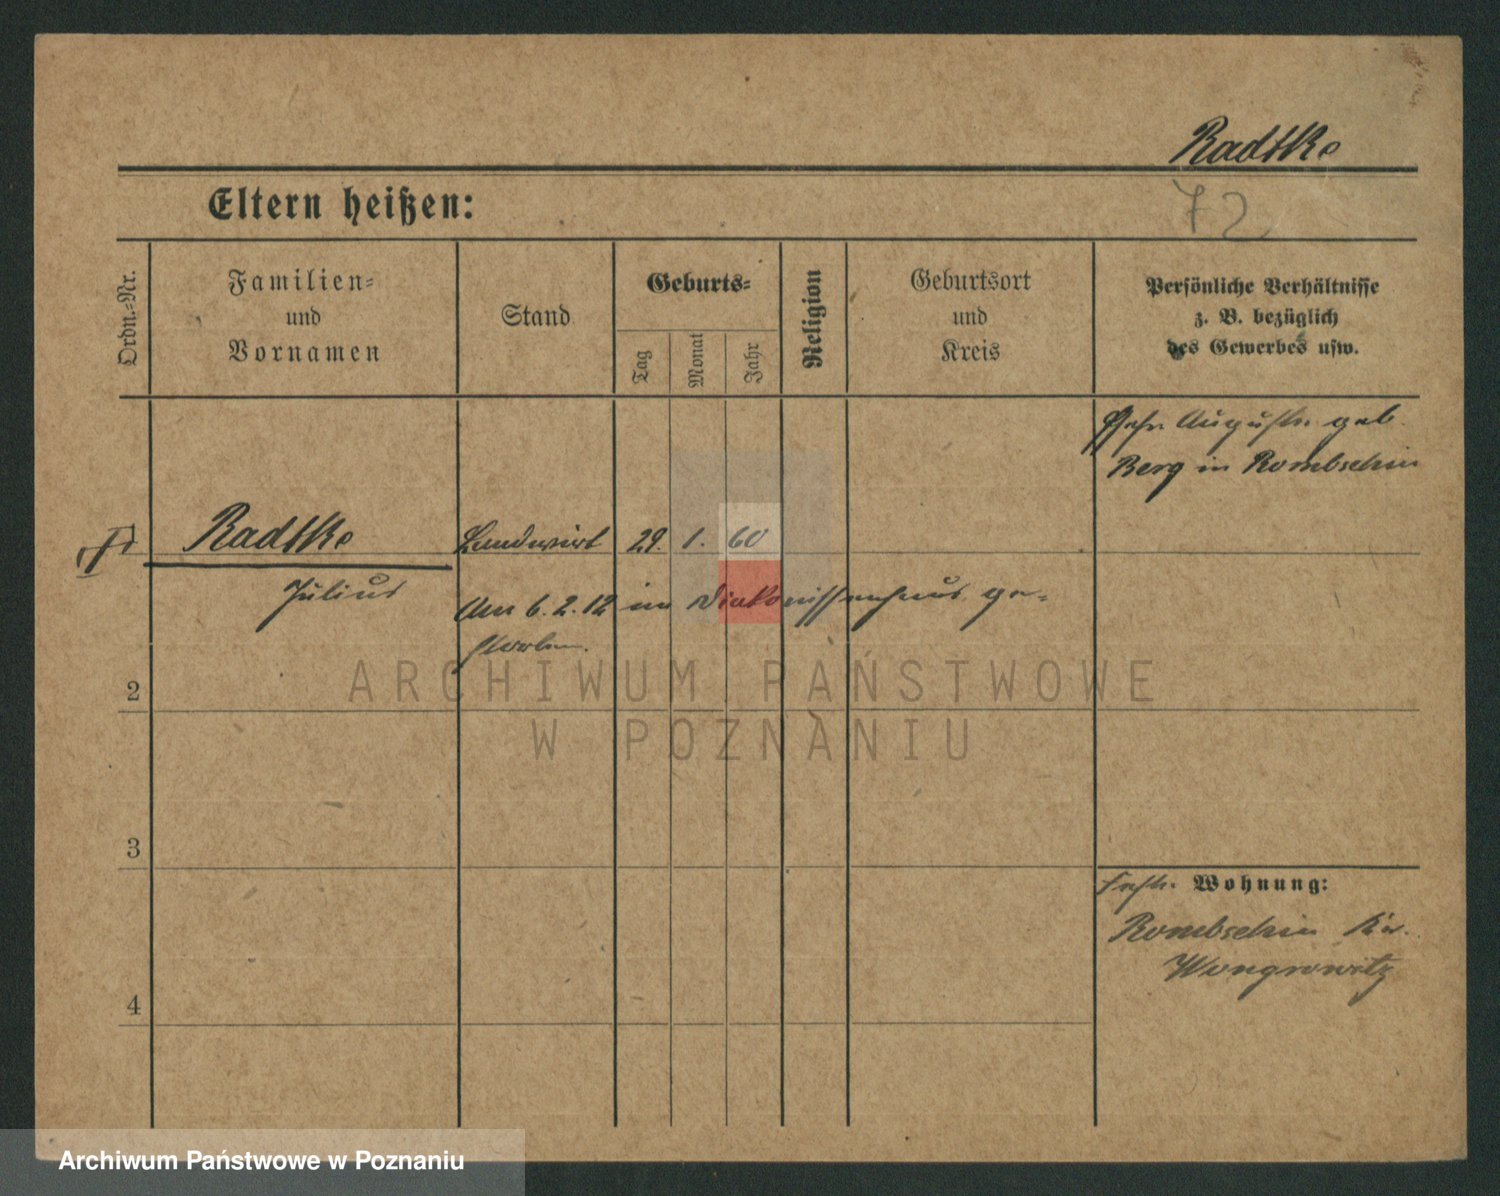 Radtke
Eltern heißen:
72
Ordn.-Nr.
Familien-
und
Vornamen
Stand
Geburts-
Tag
Monat
Jahr
Religion
Geburtsort
und
Kreis
Persönliche Verhältnisse
z. B. bezüglich
des Gewerbes usw.
Ehefr. Auguste geb.
Berg in Rombschin
Radtke Landwirt 29. 1. 60
Julius
Am 6. 2. 12 im Diakonissenhaus ge-
storben.
ARCHIWUM PAŃSTWOWE
W POZNANIU
2
3
Wohnung:
Rombschin Kr.
Wongrowitz
4
Archiwum Państwowe w Poznaniu